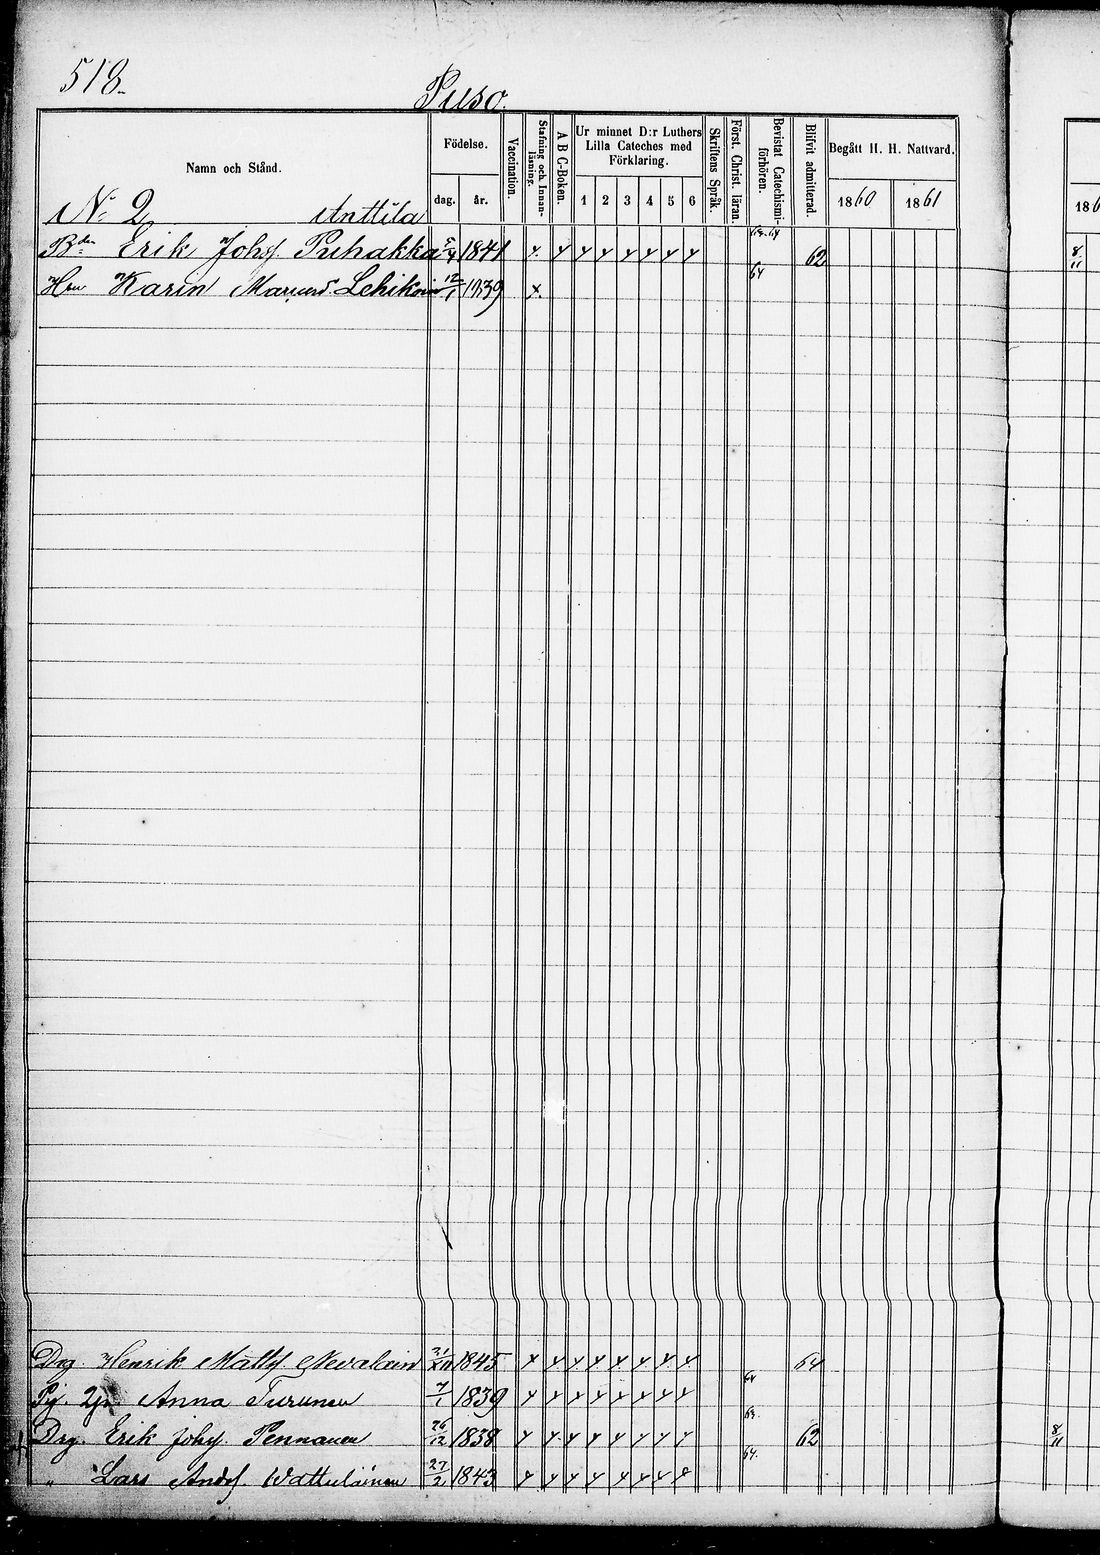 518.
Puso.
Namn och Stånd.
Födelse.
dag.
år.
Vaccination.
Stafning och Innanläsning.
A B C-Boken.
Ur minnet D:r Luthers
Lilla Cateches med
Förklaring.
1 2 3 4 5 6
Skriftens Språk.
Först. Christ. läran.
Bevistat Catechismiförhören.
Blifvit admitterad.
Begått H. H. Nattvard.
1860 1861
186
No 2 Anttila
Bden Erik Johsf. Puhakka 1841 x x x x x x x x 62 8/11
Hru Karin 12/1 1839 x. 64
Drg Henrik Mattsf. Nevalain 1845 x x x x x x x x 64
Pig. Anna Turunen 7/1 1839 x x x x x x x x 64
Drg. Erik Johsf. Pennanen 26/12 1838 x x x x x x x x 63. 62 8/11
" Lars Andsf. Wattulainen 27/2 1843 x x x x x x x x 64.